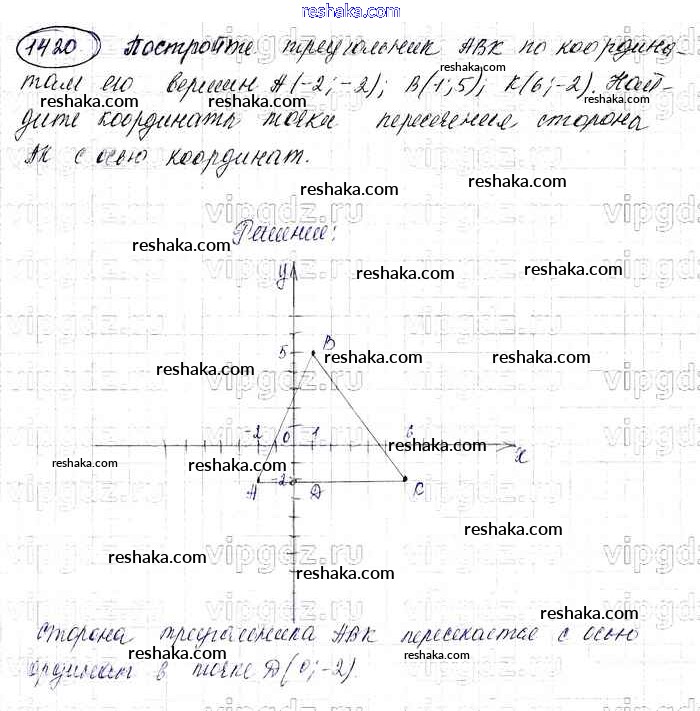 reshaka.com
1420 Постройте треугольник АВК по координа-
там его вершин А(-2;-2); В(1;5); К(6;-2). Най-
дите координаты точки пересечения сторона
АК с осью координат.
reshaka.com
reshaka.com
reshaka.com
reshaka.com
reshaka.com
vipgdz.ru
vipgdz.ru
Решение:
reshaka.com
reshaka.com
у
5
В
reshaka.com
reshaka.com
reshaka.com
-2 0 1 6
reshaka.com
х
reshaka.com
reshaka.com
А -2 D С
reshaka.com
reshaka.com
reshaka.com
vipgdz.ru
reshaka.com
сторона треугольника АВК пересекается с осью
reshaka.com
reshaka.com
ординат в точке D(0;-2).